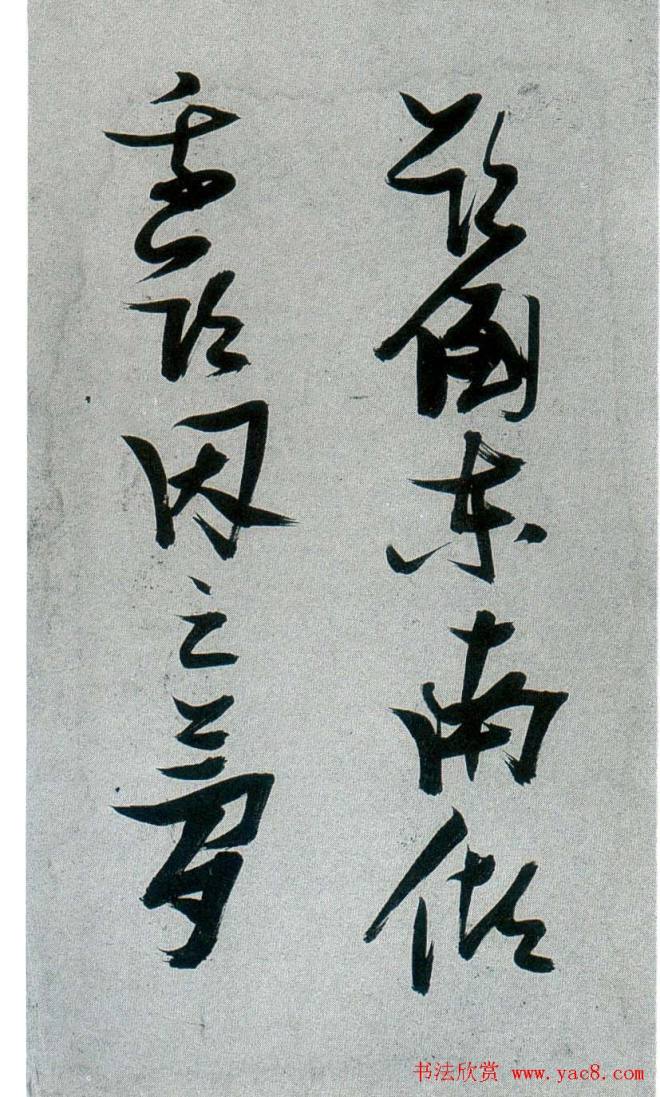 欲倒东南倾
我欲因之梦
书法欣赏 www.yac8.com